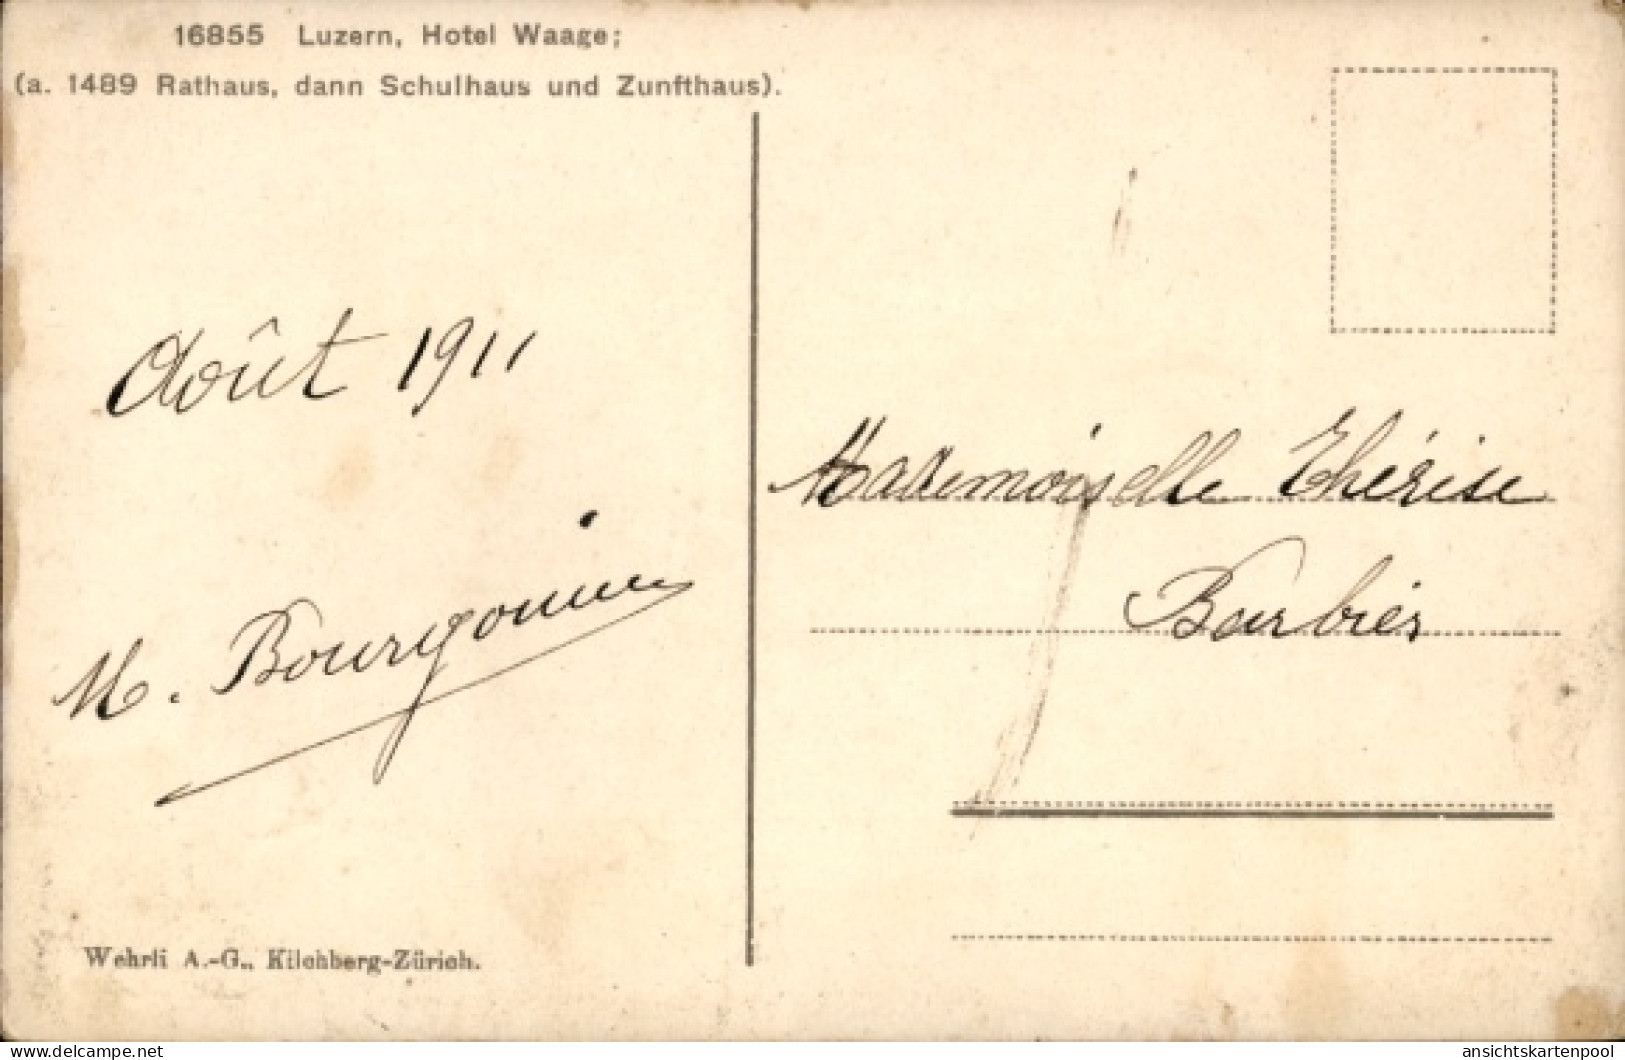 16855 Luzern, Hotel Waage;
(a. 1489 Rathaus, dann Schulhaus und Zunfthaus).
Août 1911
M. Bourgonien
Mademoiselle Thérèse
Barbier
Wehrli A.-G., Kilchberg-Zürich.
www.delcampe.net
ansichtskartenpool